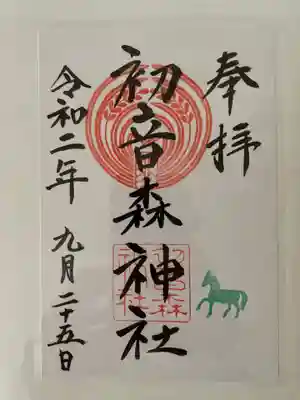 奉拝
初音森神社
令和二年 九月二十五日
初音森
神社